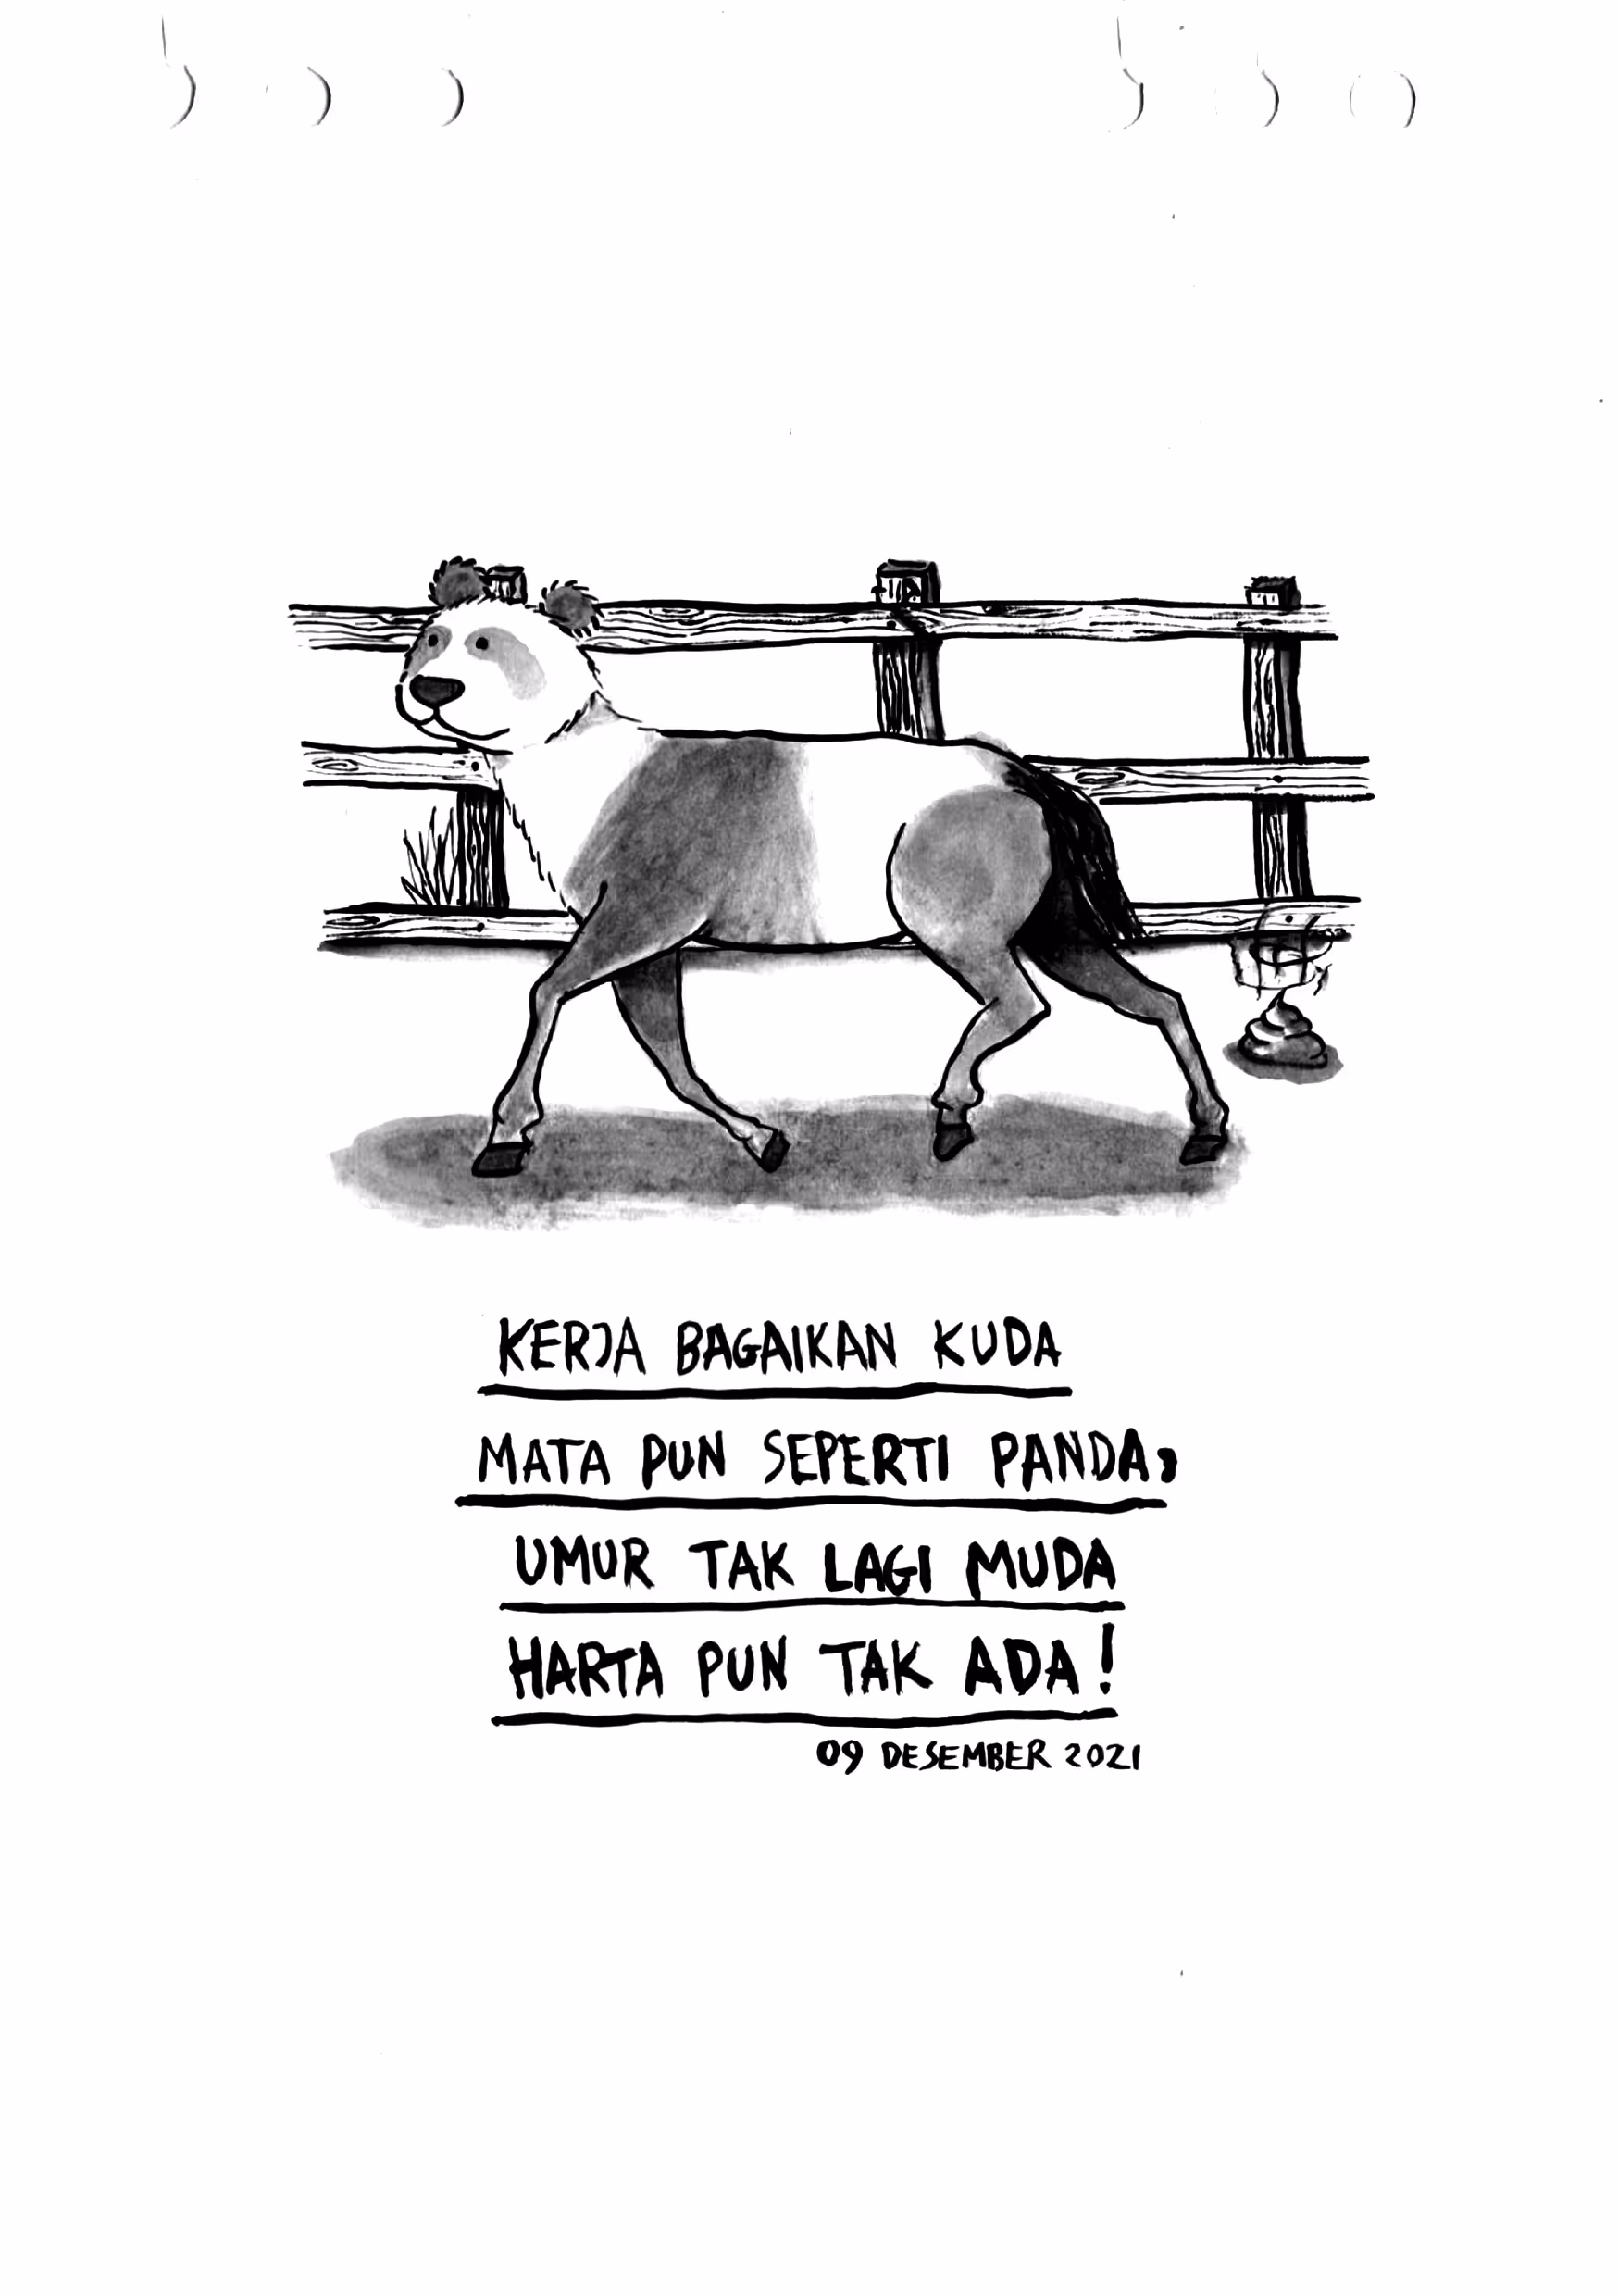 KERJA BAGAIKAN KUDA
MATA PUN SEPERTI PANDA,
UMUR TAK LAGI MUDA
HARTA PUN TAK ADA!
09 DESEMBER 2021